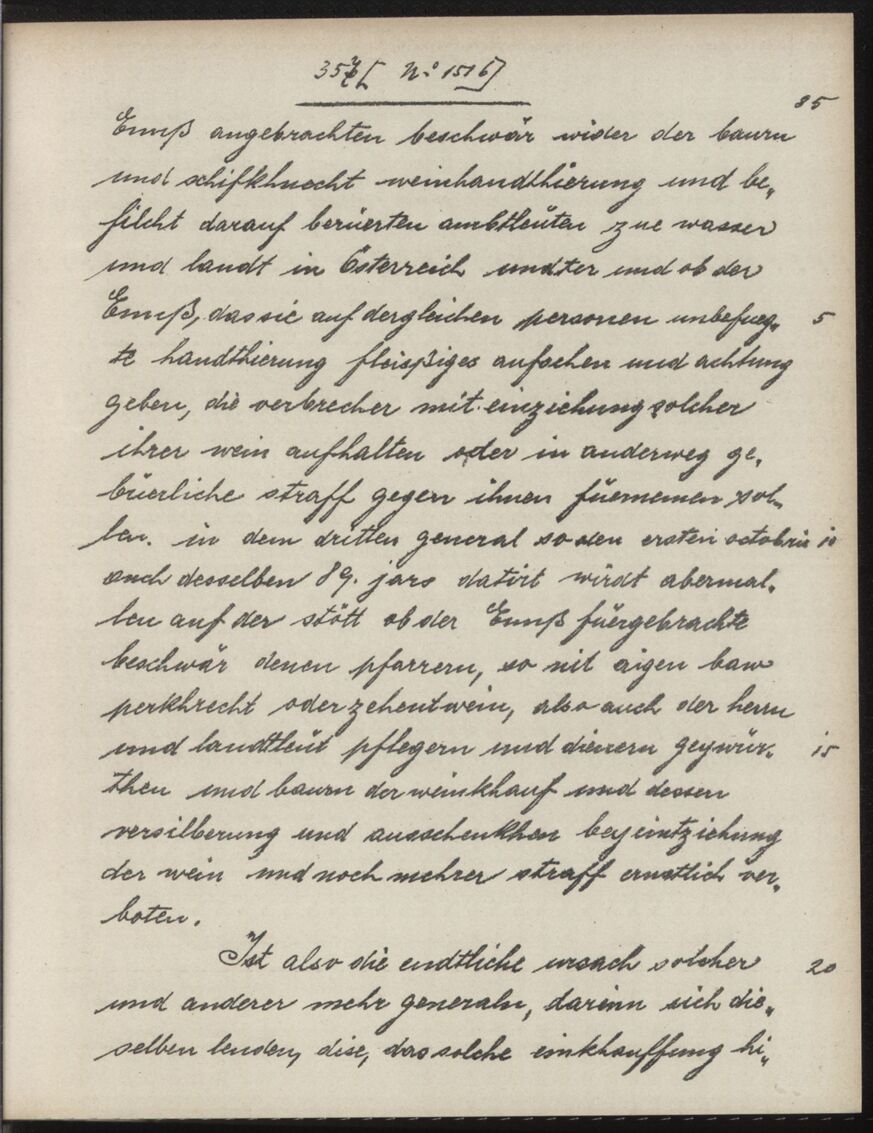 35 [ No 1516]
85
Ennß angebrachten beschwär wider der baurn
und schifkhnecht weinhandthierung und be„
filcht darauf berüerten ambtleuten zue wasser
und landt in Österreich undter und ob der
Ennß, das sie auf dergleichen personen unbefueg„ 5
te handthierung fleisßiges aufsehen und achtung
geben, die verbrecher mit einziehung solcher
ihrer wein aufhalten oder in anderweg ge„
büerliche straff gegen ihnen füernemen sol„
len. in dem dritten general so den ersten octobris 10
auch desselben 89. jars datirt wirdt abermal„
len auf der stött ob der Ennß füergebrachte
beschwär denen pfarrern, so nit aigen baw
perkhrecht oder zehentwein, also auch der herrn
und landtleüt pflegern und dienern geywür„ 15
then und baurn der weinkhauf und dessen
versilberung und ausschenkhen bey eintziehung
der wein und noch mehrer straff ernstlich ver„
boten.
Ist also die endtliche ursach solcher 20
und anderer mehr generaln, darinn sich die„
selben lenden, dise, das solche einkhauffung hi„